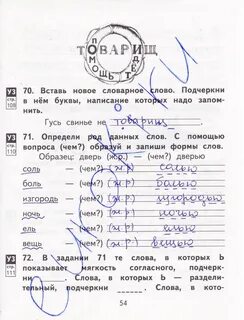 ТОВАРИЩ
ПОМОЩЬ ДЕТЕ
УЗ стр. 108
70. Вставь новое словарное слово. Подчеркни
в нём буквы, написание которых надо запом-
нить.
Гусь свинье не товарищ.
УЗ стр. 110
71. Определи род данных слов. С помощью
вопроса (чем?) образуй и запиши формы слов.
Образец: дверь (ж.р.) — (чем?) дверью
соль — (чем?) (ж.р.) солью
боль — (чем?) (ж.р.) болью
изгородь — (чем?) (ж.р.) изгородью
ночь — (чем?) (ж.р.) ночью
ель — (чем?) (ж.р.) елью
вещь — (чем?) (ж.р.) вещью
УЗ стр. 111
72. В задании 71 те слова, в которых ь
показывает мягкость согласного, подчерк-
ни . Слова, в которых ь — разде-
лительный, подчеркни . Слова, в кото-
54